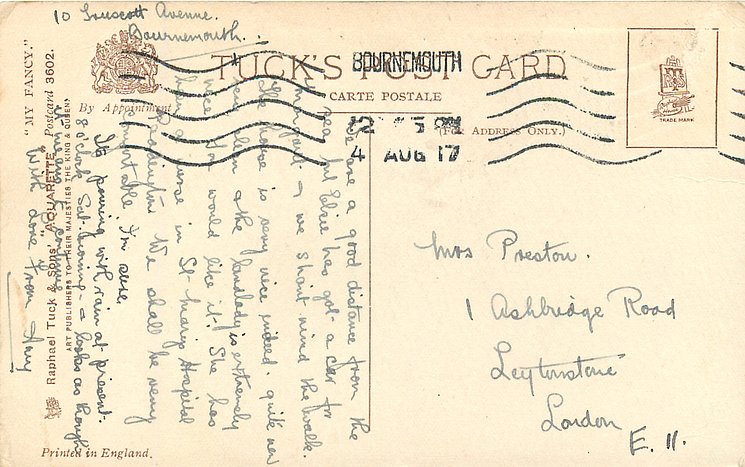 10 Truscott Avenue.
Bournemouth.
TUCK'S POST CARD
CARTE POSTALE
By Appointment
(For Address Only.)
BOURNEMOUTH
12 15 PM
4 AUG 17
TRADE MARK
"MY FANCY."
Raphael Tuck & Sons' "AQUARETTE" Postcard 3602.
ART PUBLISHERS TO THEIR MAJESTIES THE KING & QUEEN.
Printed in England.
We are a good distance from the
sea but Elsie has got a car for
Margaret & we shant mind the walk.
The house is very nice indeed. quite new
very clean & the landlady is extremely
nice. You would like it. She has
been a nurse in St. Marys Hospital
Paddington. We shall be very
comfortable I'm sure.
Its pouring with rain at present.
8 o'clock Sat. morning - & looks as though
it means to continue
With love from Amy
Mrs Preston.
1 Ashbridge Road
Leytonstone
London
E. 11.